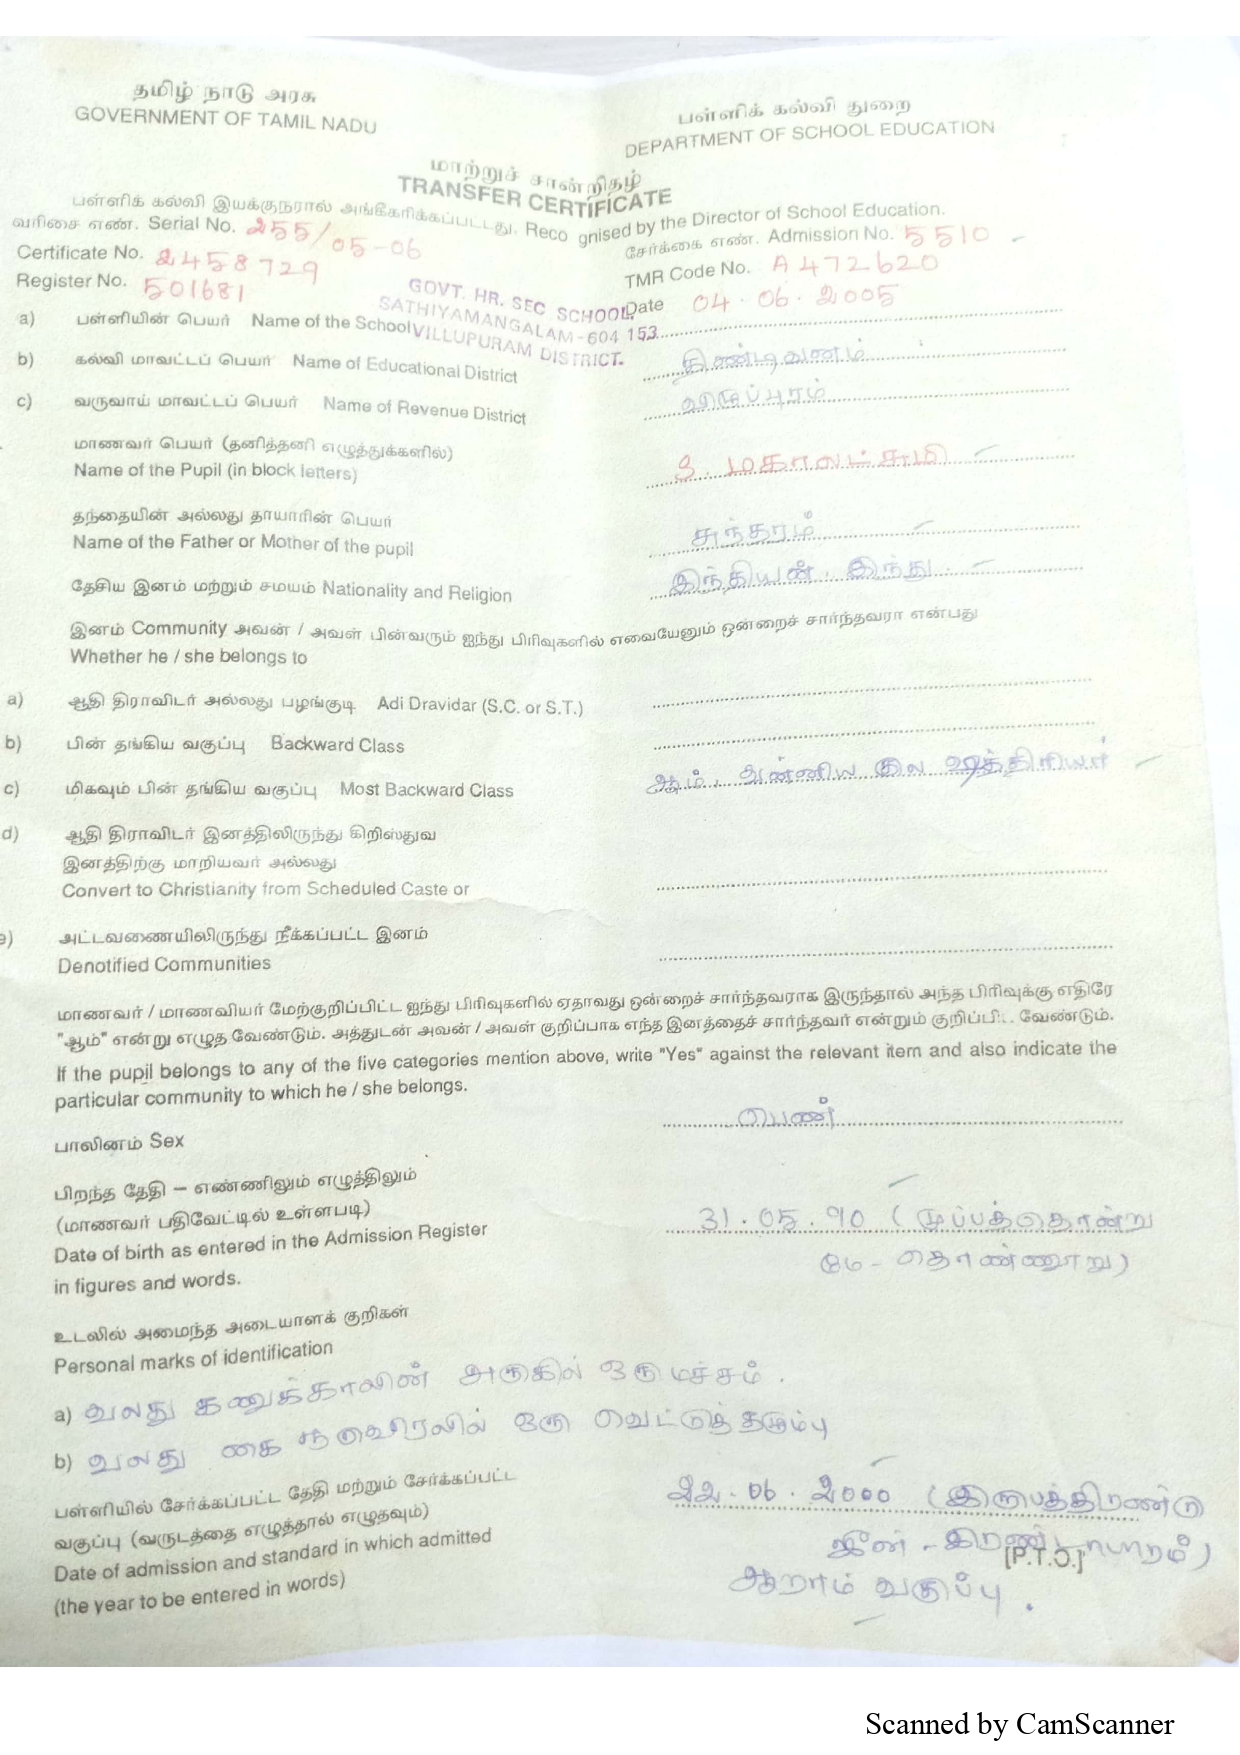 தமிழ் நாடு அரசு
GOVERNMENT OF TAMIL NADU
பள்ளிக் கல்வி துறை
DEPARTMENT OF SCHOOL EDUCATION
மாற்றுச் சான்றிதழ்
TRANSFER CERTIFICATE
பள்ளிக் கல்வி இயக்குநரால் அங்கேரிக்கப்பட்டது. Reco gnised by the Director of School Education.
வரிசை எண். Serial No. 255/05-06
சேர்க்கை எண். Admission No. 5510
Certificate No. 2458729
TMR Code No. A 472620
Register No. 501681
Date 04.06.2005
GOVT. HR. SEC SCHOOL,
SATHIYAMANGALAM-604 153.
VILLUPURAM DISTRICT.
a) பள்ளியின் பெயர் Name of the School
b) கல்வி மாவட்டப் பெயர் Name of Educational District திண்டிவனம்
c) வருவாய் மாவட்டப் பெயர் Name of Revenue District விழுப்புரம்
மாணவர் பெயர் (தனித்தனி எழுத்துக்களில்)
Name of the Pupil (in block letters) சு. மகாலட்சுமி
தந்தையின் அல்லது தாயாரின் பெயர்
Name of the Father or Mother of the pupil சுந்தரம்
தேசிய இனம் மற்றும் சமயம் Nationality and Religion இந்தியன். இந்து.
இனம் Community அவன் / அவள் பின்வரும் ஐந்து பிரிவுகளில் எவையேனும் ஒன்றைச் சார்ந்தவரா என்பது
Whether he / she belongs to
a) ஆதி திராவிடர் அல்லது பழங்குடி Adi Dravidar (S.C. or S.T.)
b) பின் தங்கிய வகுப்பு Backward Class
c) மிகவும் பின் தங்கிய வகுப்பு Most Backward Class ஆம். வன்னிய குல ஷத்திரியர்
d) ஆதி திராவிடர் இனத்திலிருந்து கிறிஸ்துவ
இனத்திற்கு மாறியவர் அல்லது
Convert to Christianity from Scheduled Caste or
e) அட்டவணையிலிருந்து நீக்கப்பட்ட இனம்
Denotified Communities
மாணவர் / மாணவியர் மேற்குறிப்பிட்ட ஐந்து பிரிவுகளில் ஏதாவது ஒன்றைச் சார்ந்தவராக இருந்தால் அந்த பிரிவுக்கு எதிரே
"ஆம்" என்று எழுத வேண்டும். அத்துடன் அவன் / அவள் குறிப்பாக எந்த இனத்தைச் சார்ந்தவர் என்றும் குறிப்பி.. வேண்டும்.
If the pupil belongs to any of the five categories mention above, write "Yes" against the relevant item and also indicate the
particular community to which he / she belongs.
பாலினம் Sex பெண்
பிறந்த தேதி – எண்ணிலும் எழுத்திலும்
(மாணவர் பதிவேட்டில் உள்ளபடி)
Date of birth as entered in the Admission Register 31.05.90 (முப்பத்தொன்று
in figures and words. மே-தொண்ணூறு)
உடலில் அமைந்த அடையாளக் குறிகள்
Personal marks of identification
a) வலது கணுக்காலின் அருகில் ஒரு மச்சம்.
b) வலது கை ஒரு வெட்டுத்தழும்பு
பள்ளியில் சேர்க்கப்பட்ட தேதி மற்றும் சேர்க்கப்பட்ட
வகுப்பு (வருடத்தை எழுத்தால் எழுதவும்) 22.06.2000 (இருபத்திரண்டு
Date of admission and standard in which admitted ஜீன் - இரண்டாயிரம்)
[P.T.O.]
(the year to be entered in words) ஆறாம் வகுப்பு.
Scanned by CamScanner